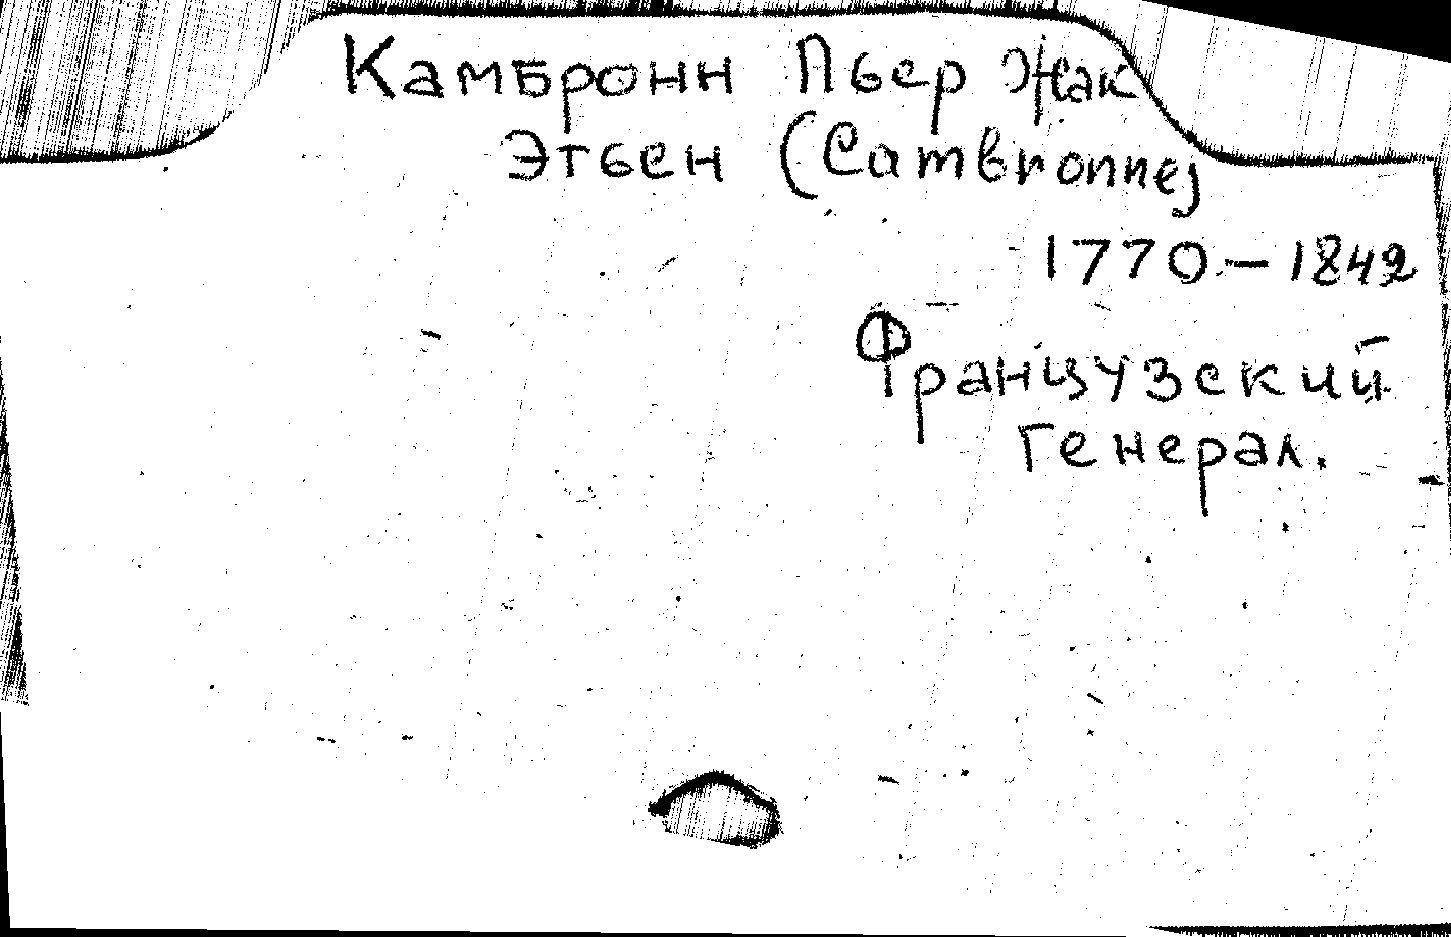 Камбронн Пьер Жак
Этьен (Cambronne)
1770 - 1842
Французский
генерал.